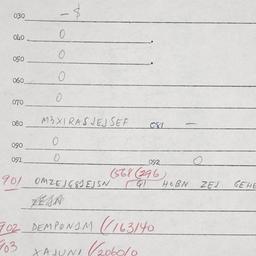 030 - $
040 0
050 0
060 0
070 0
080 M3XIRASJEJSEF 081 -
090 0
091 0 092 0
(568 (296)
901 OMZEJG8JEJSN GI HOBN ZEJ GEHE
902 DEMPONJM (/163/40
903 XAJUNI (/2060/0